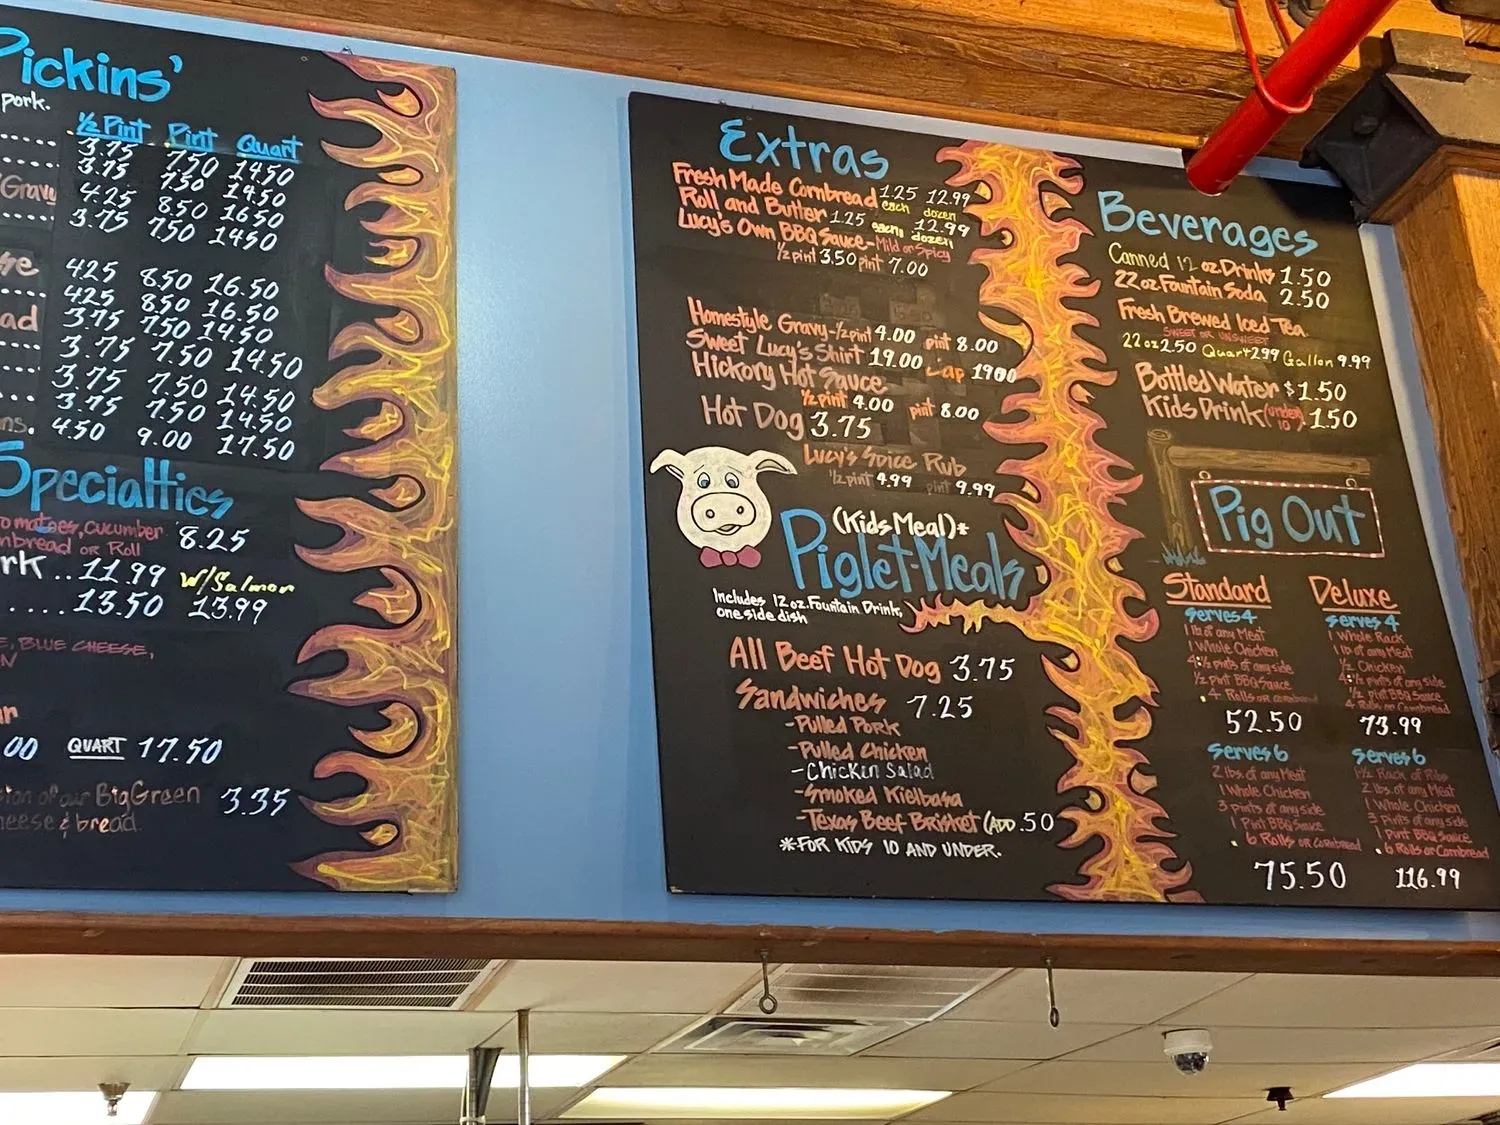 Pickins'
pork.
1/2 Pint Pint Quart
3.75 7.50 14.50
3.75 7.50 14.50
Gravy 4.25 8.50 16.50
3.75 7.50 14.50
4.25 8.50 16.50
4.25 8.50 16.50
3.75 7.50 14.50
3.75 7.50 14.50
3.75 7.50 14.50
3.75 7.50 14.50
4.50 9.00 17.50
Specialties
cucumber 8.25
or Roll
..11.99 w/Salmon
.....13.50 13.99
BLUE CHEESE,
QUART 17.50
of our Big Green 3.35
& bread.
Extras
Fresh Made Cornbread 1.25 12.99
each dozen
Roll and Butter 1.25 12.99
each, dozen
Lucy's Own BBQ Sauce - Mild or Spicy
1/2 pint 3.50 pint 7.00
Homestyle Gravy - 1/2 pint 4.00 pint 8.00
Sweet Lucy's Shirt 19.00 Cap 19.00
Hickory Hot Sauce
1/2 pint 4.00 pint 8.00
Hot Dog 3.75
Lucy's Spice Rub
1/2 pint 4.99 pint 9.99
(Kids Meal)*
Piglet-Meals
Includes 12 oz. Fountain Drink,
one side dish
All Beef Hot Dog 3.75
Sandwiches 7.25
- Pulled Pork
- Pulled Chicken
- Chicken Salad
- Smoked Kielbasa
- Texas Beef Brisket (ADD .50
*FOR KIDS 10 AND UNDER.
Beverages
Canned 12 oz Drinks 1.50
22 oz Fountain Soda 2.50
Fresh Brewed Iced Tea
SWEET OR UNSWEET
22 oz 2.50 Quart 2.99 Gallon 9.99
Bottled Water $1.50
Kids Drink (under 10) 1.50
Pig Out
Standard
serves 4
1 lb of any Meat
1 Whole Chicken
4 1/2 pints of any side
1/2 pint BBQ Sauce
4 Rolls or cornbread
52.50
serves 6
2 lbs. of any Meat
1 Whole Chicken
3 pints of any side
1 Pint BBQ Sauce
6 Rolls or Cornbread
75.50
Deluxe
serves 4
1 Whole Rack
1 lb of any Meat
1/2 Chicken
4 1/2 pints of any side
1/2 pint BBQ Sauce
4 Rolls or Cornbread
73.99
serves 6
1 1/2 Rack of Ribs
2 lbs. of any Meat
1 Whole Chicken
3 pints of any side
1 pint BBQ Sauce
6 Rolls or Cornbread
116.99